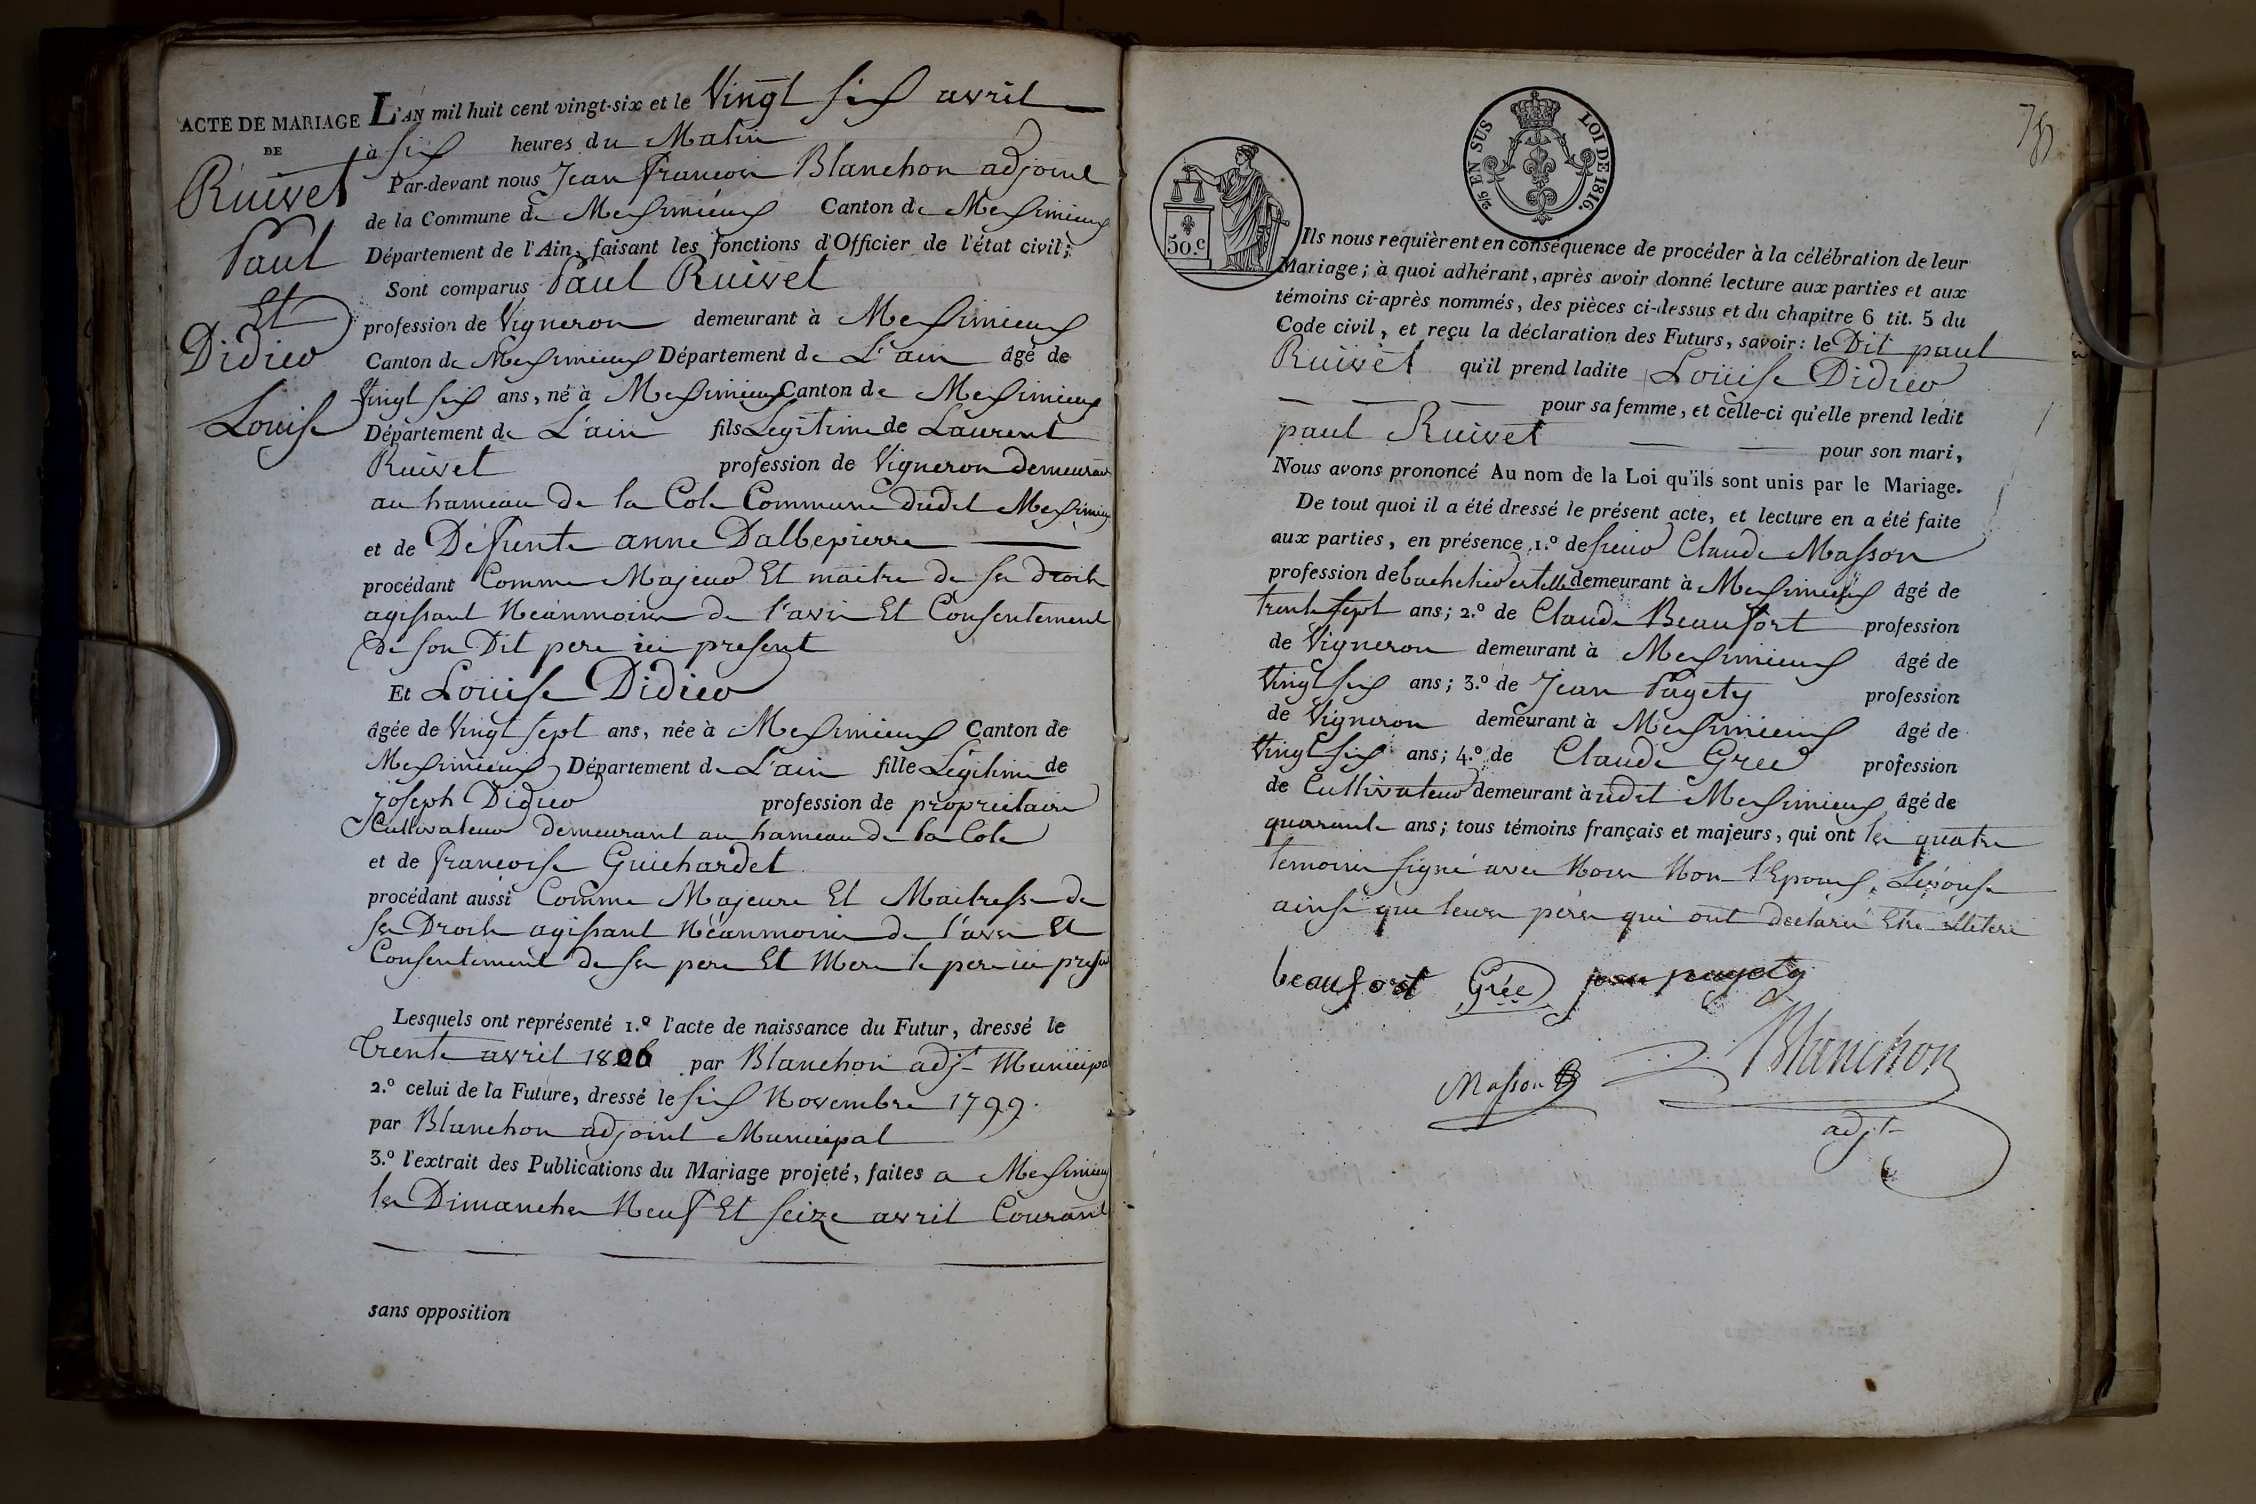 ACTE DE MARIAGE
DE
Ruivet
Paul
Et
Didier
Louise
L'AN mil huit cent vingt-six et le Vingt six avril
à six heures du Matin
Par-devant nous Jean francois Blanchon adjoint
de la Commune de Meximieux Canton de Meximieux
Département de l'Ain, faisant les fonctions d'Officier de l'état civil;
Sont comparus Paul Ruivet
profession de Vigneron demeurant à Meximieux
Canton de Meximieux Département de L'ain âgé de
Vingt six ans, né à Meximieux Canton de Meximieux
Département de L'ain fils Legitime de Laurent
Ruivet profession de Vigneron demeurant
au hameau de la Cote Commune dudit Meximieux
et de Défunte anne Dalbepierre
procédant Comme Majeur Et maitre de ses droits
agissant Néanmoins de l'avis Et Consentement
de son Dit pere ici present
Et Loüise Didier
âgée de Vingt sept ans, née à Meximieux Canton de
Meximieux Département de L'ain fille Légitime de
joseph Didier profession de propriétaire
Cultivateur demeurant au hameau de la Cote
et de francoise Guichardet
procédant aussi Comme Majeure Et Maitresse de
ses Droits agissant Néanmoins de l'avis Et
Consentement de ses pere Et Mere le pere ici présent
Lesquels ont représenté 1.º l'acte de naissance du Futur, dressé le
trente avril 1806 par Blanchon adjt Municipal
2.º celui de la Future, dressé le six Novembre 1799.
par Blanchon adjoint Municipal
3.º l'extrait des Publications du Mariage projeté, faites a Meximieux
les Dimanches Neuf Et Seize avril Courant
sans opposition
50.c
5/10 EN SUS LOI DE 1816.
Ils nous requièrent en conséquence de procéder à la célébration de leur
Mariage; à quoi adhérant, après avoir donné lecture aux parties et aux
témoins ci-après nommés, des pièces ci-dessus et du chapitre 6 tit. 5 du
Code civil, et reçu la déclaration des Futurs, savoir: le Dit paul
Ruivet qu'il prend ladite Loüise Didier
pour sa femme, et celle-ci qu'elle prend ledit
paul Ruivet pour son mari,
Nous avons prononcé Au nom de la Loi qu'ils sont unis par le Mariage.
De tout quoi il a été dressé le présent acte, et lecture en a été faite
aux parties, en présence 1.º de sieur Claude Masson
profession de bachelier es lettres demeurant à Meximieux âgé de
trente sept ans; 2.º de Claude Beaufort profession
de Vigneron demeurant à Meximieux âgé de
Vingt six ans; 3.º de Jean Pagety profession
de Vigneron demeurant à Meximieux âgé de
Vingt six ans; 4.º de Claude Gree profession
de Cultivateur demeurant à udit Meximieux âgé de
quarante ans; tous témoins français et majeurs, qui ont les quatre
temoins signé avec Nous Non l'Epoux, L'épouse
ainsi que leurs pères qui ont déclaré Etre illeterés
beaufort Grée jean pagety
Blanchon
Masson
adjt